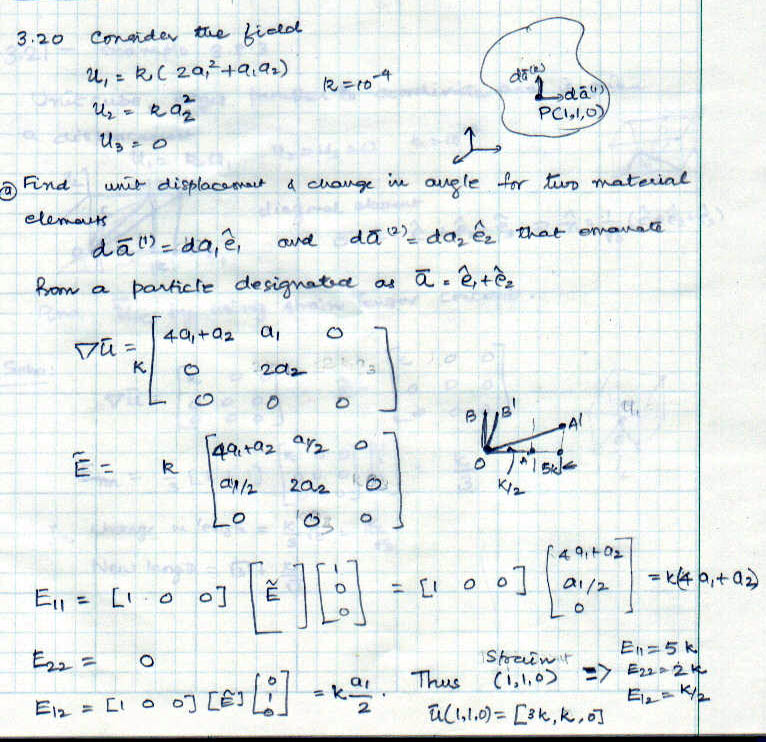 3.20 Consider the field
u₁ = k ( 2a₁² + a₁a₂)
k = 10⁻⁴
u₂ = k a₂²
u₃ = 0
dā⁽²⁾
dā⁽¹⁾
P(1,1,0)
(a) Find unit displacement & change in angle for two material
elements
dā⁽¹⁾ = da₁ ê₁ and dā⁽²⁾ = da₂ ê₂ that emanate
from a particle designated as ā = ê₁+ê₂
∇ū = k [ 4a₁+a₂ a₁ 0
0 2a₂ 0
0 0 0 ]
B B' A'
O A 5k
k/2
Ẽ = k [ 4a₁+a₂ a₁/2 0
a₁/2 2a₂ 0
0 0 0 ]
E₁₁ = [1 0 0] [Ẽ] [1 0 0] = [1 0 0] [4a₁+a₂ a₁/2 0] = k(4a₁+a₂)
E₂₂ = 0
E₁₂ = [1 0 0] [Ẽ] [0 1 0] = k a₁/2 . Thus Strain (1,1,0) ⇒ E₁₁ = 5k
E₂₂ = 2k
E₁₂ = k/2
ū(1,1,0) = [3k, k, 0]